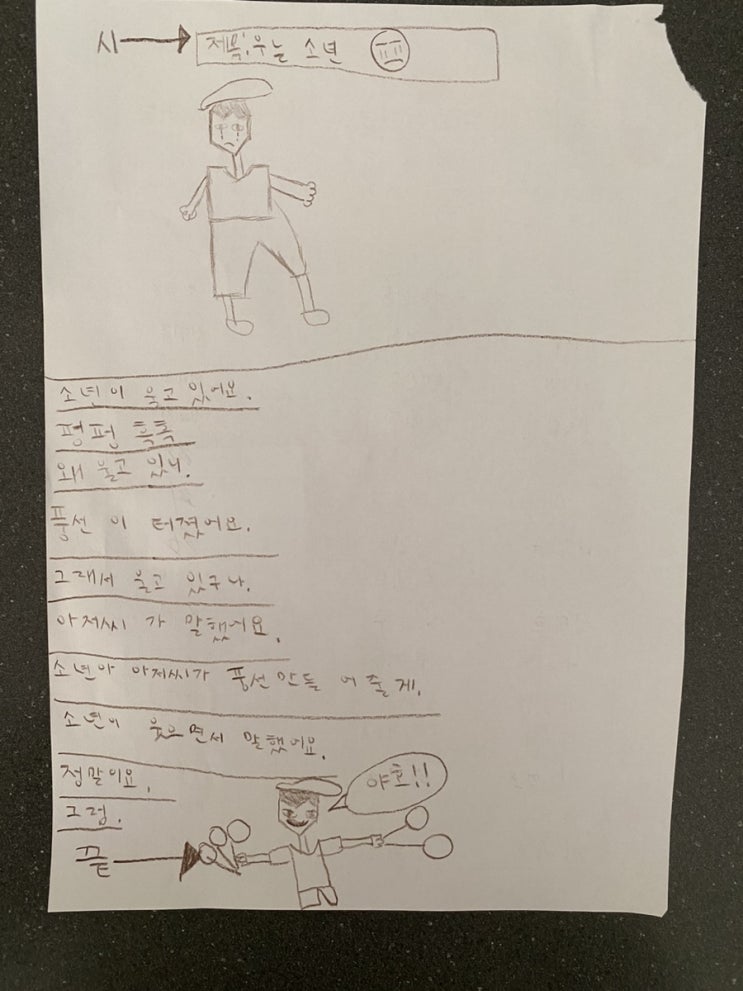 시
제목: 우는 소년
소년이 울고 있어요.
펑펑 흑흑
왜 울고 있니.
풍선 이 터졌어요.
그래서 울고 있구나.
아저씨 가 말했어요.
소년아 아저씨가 풍선만들 어 줄게.
소년이 웃으면서 말했어요.
정말이요.
그럼.
야호!!
끝